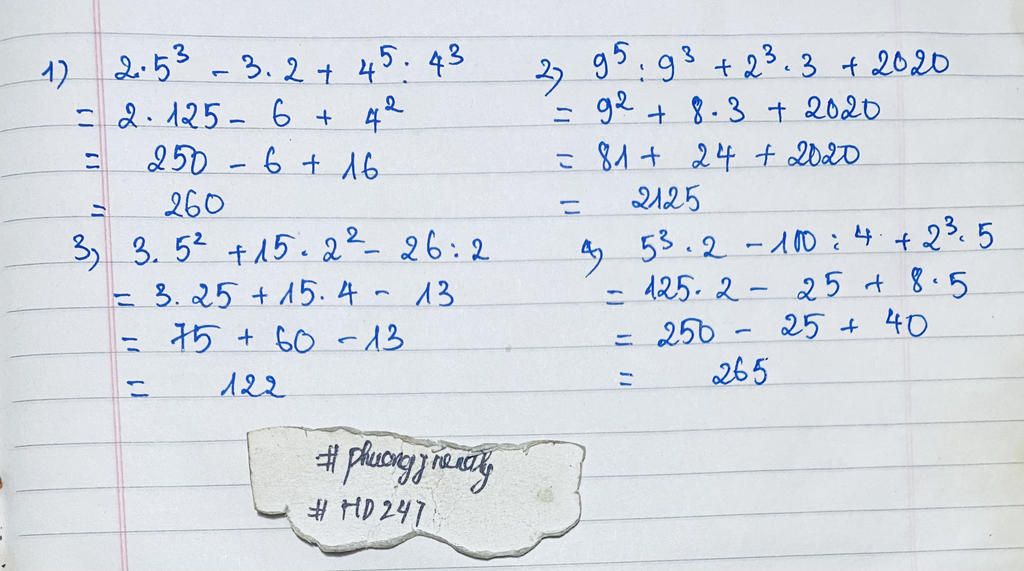 1) 2.5³ - 3.2 + 4⁵ : 4³
= 2.125 - 6 + 4²
= 250 - 6 + 16
= 260
2) 9⁵ : 9³ + 2³.3 + 2020
= 9² + 8.3 + 2020
= 81 + 24 + 2020
= 2125
3) 3.5² + 15.2² - 26 : 2
= 3.25 + 15.4 - 13
= 75 + 60 - 13
= 122
4) 5³.2 - 100 : 4 + 2³.5
= 125.2 - 25 + 8.5
= 250 - 25 + 40
= 265
# HD247